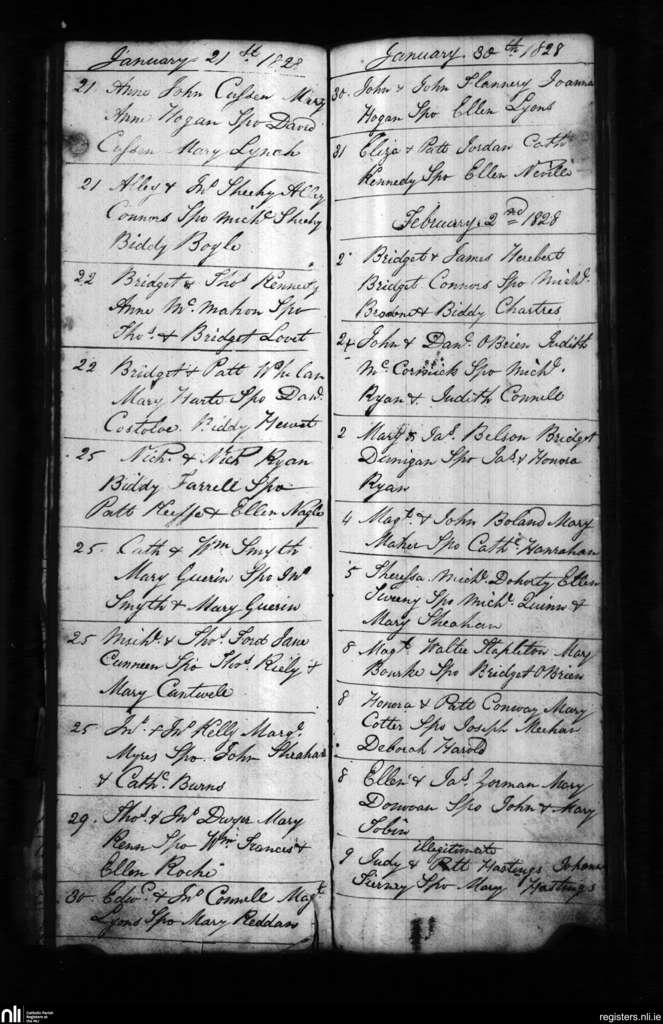 January 21st 1828
21 Anne John Cussen Mary
Anne Hogan Spo David
Cussen Mary Lynch
21 Alley & Jno Sheehy Alley
Connors Spo Michl Sheehy
Biddy Boyle
22 Bridget & Thos Kennedy
Anne Mc Mahon Spo
Thos & Bridget Lovet
22 Bridget & Patt Whelan
Mary Harte Spo Danl
Costoloe Biddy Hewet
25 Nich & Nich Ryan
Biddy Farrell Spo
Patt Keeffe & Ellen Nagle
25 Cath & Wm Smyth
Mary Guerin Spo Jno
Smyth & Mary Guerin
25 Michl & Thos Ford Jane
Cunneen Spo Thos Kiely &
Mary Cantwele
25 Jno & Jno Kelly Margt
Myres Spo John Sheahan
& Cathe Burns
29 Thos & Jno Dwyer Mary
Kenn Spo Wm Frances &
Ellen Roche
30 Edwd & Jno Connell Magt
Lyons Spo Mary Reddan
January 30th 1828
30 John & John Flannery Joanna
Hogan Spo Ellen Lyons
31 Eliza & Patt Jordan Cath
Kennedy Spo Ellen Neville
February 2nd 1828
2 Bridget & James Herebert
Bridget Connors Spo Michl
& Biddy Chartres
2 John & Danl OBrien Judith
Mc Cormick Spo Michl
Ryan & Judith Connell
2 Mary & Jas Belson Bridget
Dunigan Spo Jas & Honora
Ryan
4 Magt & John Boland Mary
Maher Spo Cathe Hanrahan
5 Theressa Michl Doherty Ellen
Sweeny Spo Michl Quinn &
Mary Sheahan
8 Magt Walter Stapleton Mary
Bourke Spo Bridget OBrien
8 Honora & Patt Conway Mary
Cotter Spo Joseph Meehan
Deborah Harold
8 Ellen & Jas Gorman Mary
Donovan Spo John & Mary
Tobin
illegitimate
9 Judy & Patt Hastings Johana
Tierney Spo Mary Hastings
nli Catholic Parish
Registers at
the NLI
registers.nli.ie